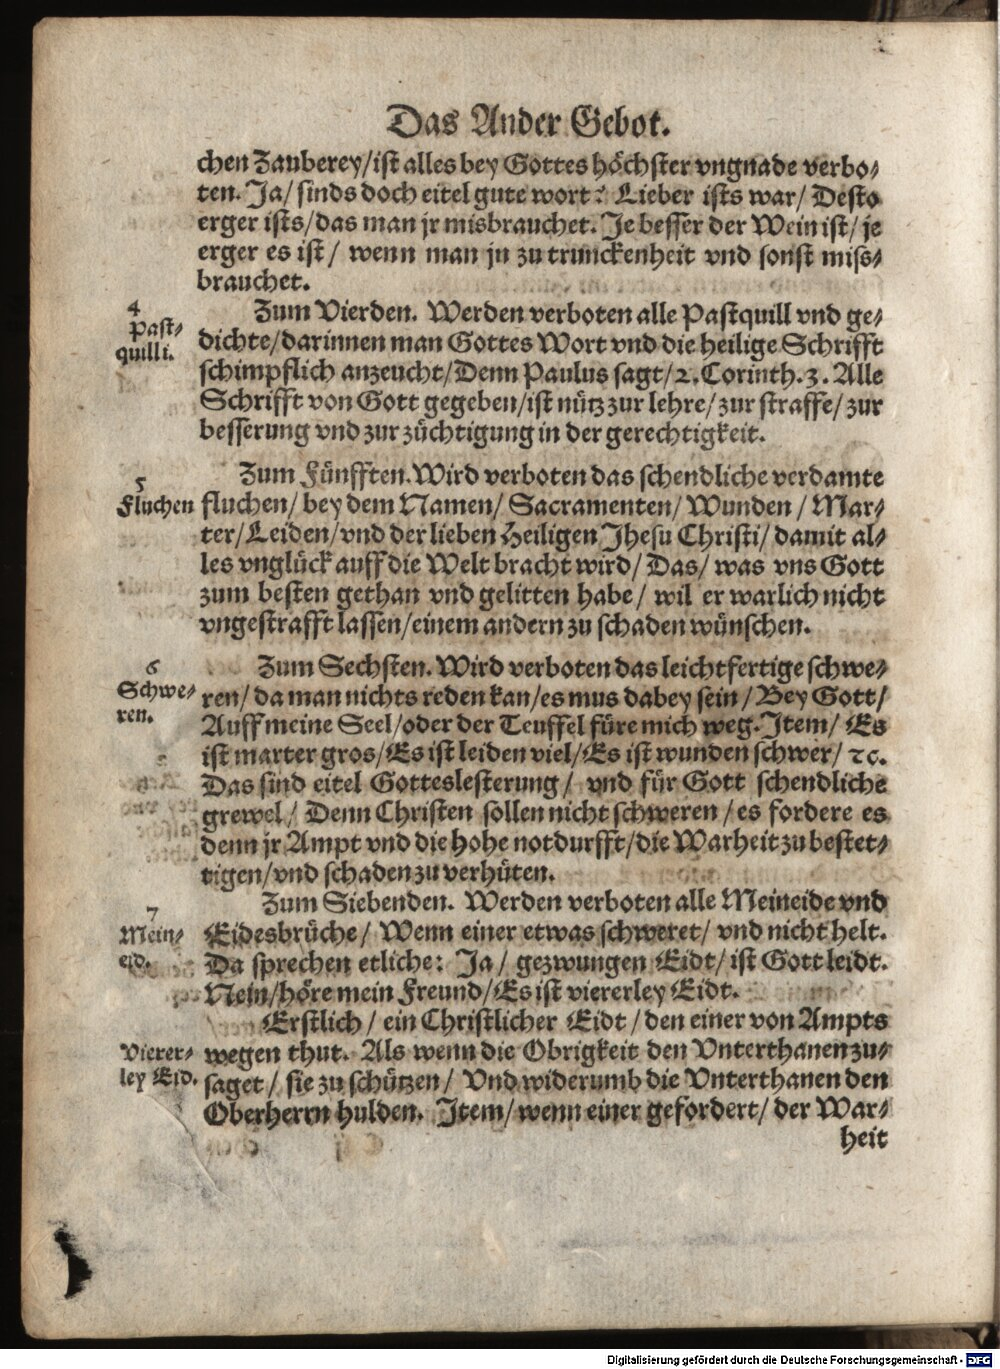 Das Ander Gebot.
chen Zauberey/ist alles bey Gottes höchster vngnade verbo⸗
ten. Ja/ sinds doch eitel gute wort: Lieber ists war/ Desto
erger ists/das man jr misbrauchet. Je besser der Wein ist/ je
erger es ist/ wenn man jn zu trunckenheit vnd sonst miss⸗
brauchet.
4
Past⸗
quilli.
Zum Vierden. Werden verboten alle Pastquill vnd ge⸗
dichte/darinnen man Gottes Wort vnd die heilige Schrifft
schimpflich anzeucht/Denn Paulus sagt/2.Corinth.3. Alle
Schrifft von Gott gegeben/ist nütz zur lehre/zur straffe/zur
besserung vnd zur züchtigung in der gerechtigkeit.
5
Fluchen
Zum Fünfften. Wird verboten das schendliche verdamte
fluchen/ bey dem Namen/ Sacramenten/ Wunden/ Mar⸗
ter/Leiden/vnd der lieben Heiligen Jhesu Christi/ damit al⸗
les vnglück auff die Welt bracht wird/ Das/ was vns Gott
zum besten gethan vnd gelitten habe/ wil er warlich nicht
vngestrafft lassen/einem andern zu schaden wünschen.
6
Schwe⸗
ren.
Zum Sechsten. Wird verboten das leichtfertige schwe⸗
ren/ da man nichts reden kan/es mus dabey sein/ Bey Gott/
Auff meine Seel/oder der Teuffel füre mich weg. Item/ Es
ist marter gros/Es ist leiden viel/Es ist wunden schwer/ ꝛc.
Das sind eitel Gotteslesterung/ vnd für Gott schendliche
grewel/ Denn Christen sollen nicht schweren/es fordere es
denn jr Ampt vnd die hohe notdurfft/die Warheit zu bestet⸗
tigen/vnd schaden zu verhüten.
7
Mein⸗
eid.
Zum Siebenden. Werden verboten alle Meineide vnd
Eidesbrüche/ Wenn einer etwas schweret/ vnd nicht helt.
Da sprechen etliche: Ja/ gezwungen Eidt/ ist Gott leidt.
Nein/höre mein Freund/Es ist viererley Eidt.
Vierer⸗
ley Eid.
Erstlich/ ein Christlicher Eidt/ den einer von Ampts
wegen thut. Als wenn die Obrigkeit den Vnterthanen zu⸗
saget/ sie zu schützen/ Vnd widerumb die Vnterthanen den
Oberherrn hulden. Item/ wenn einer gefordert/ der War⸗
heit
Digitalisierung gefördert durch die Deutsche Forschungsgemeinschaft - DFG